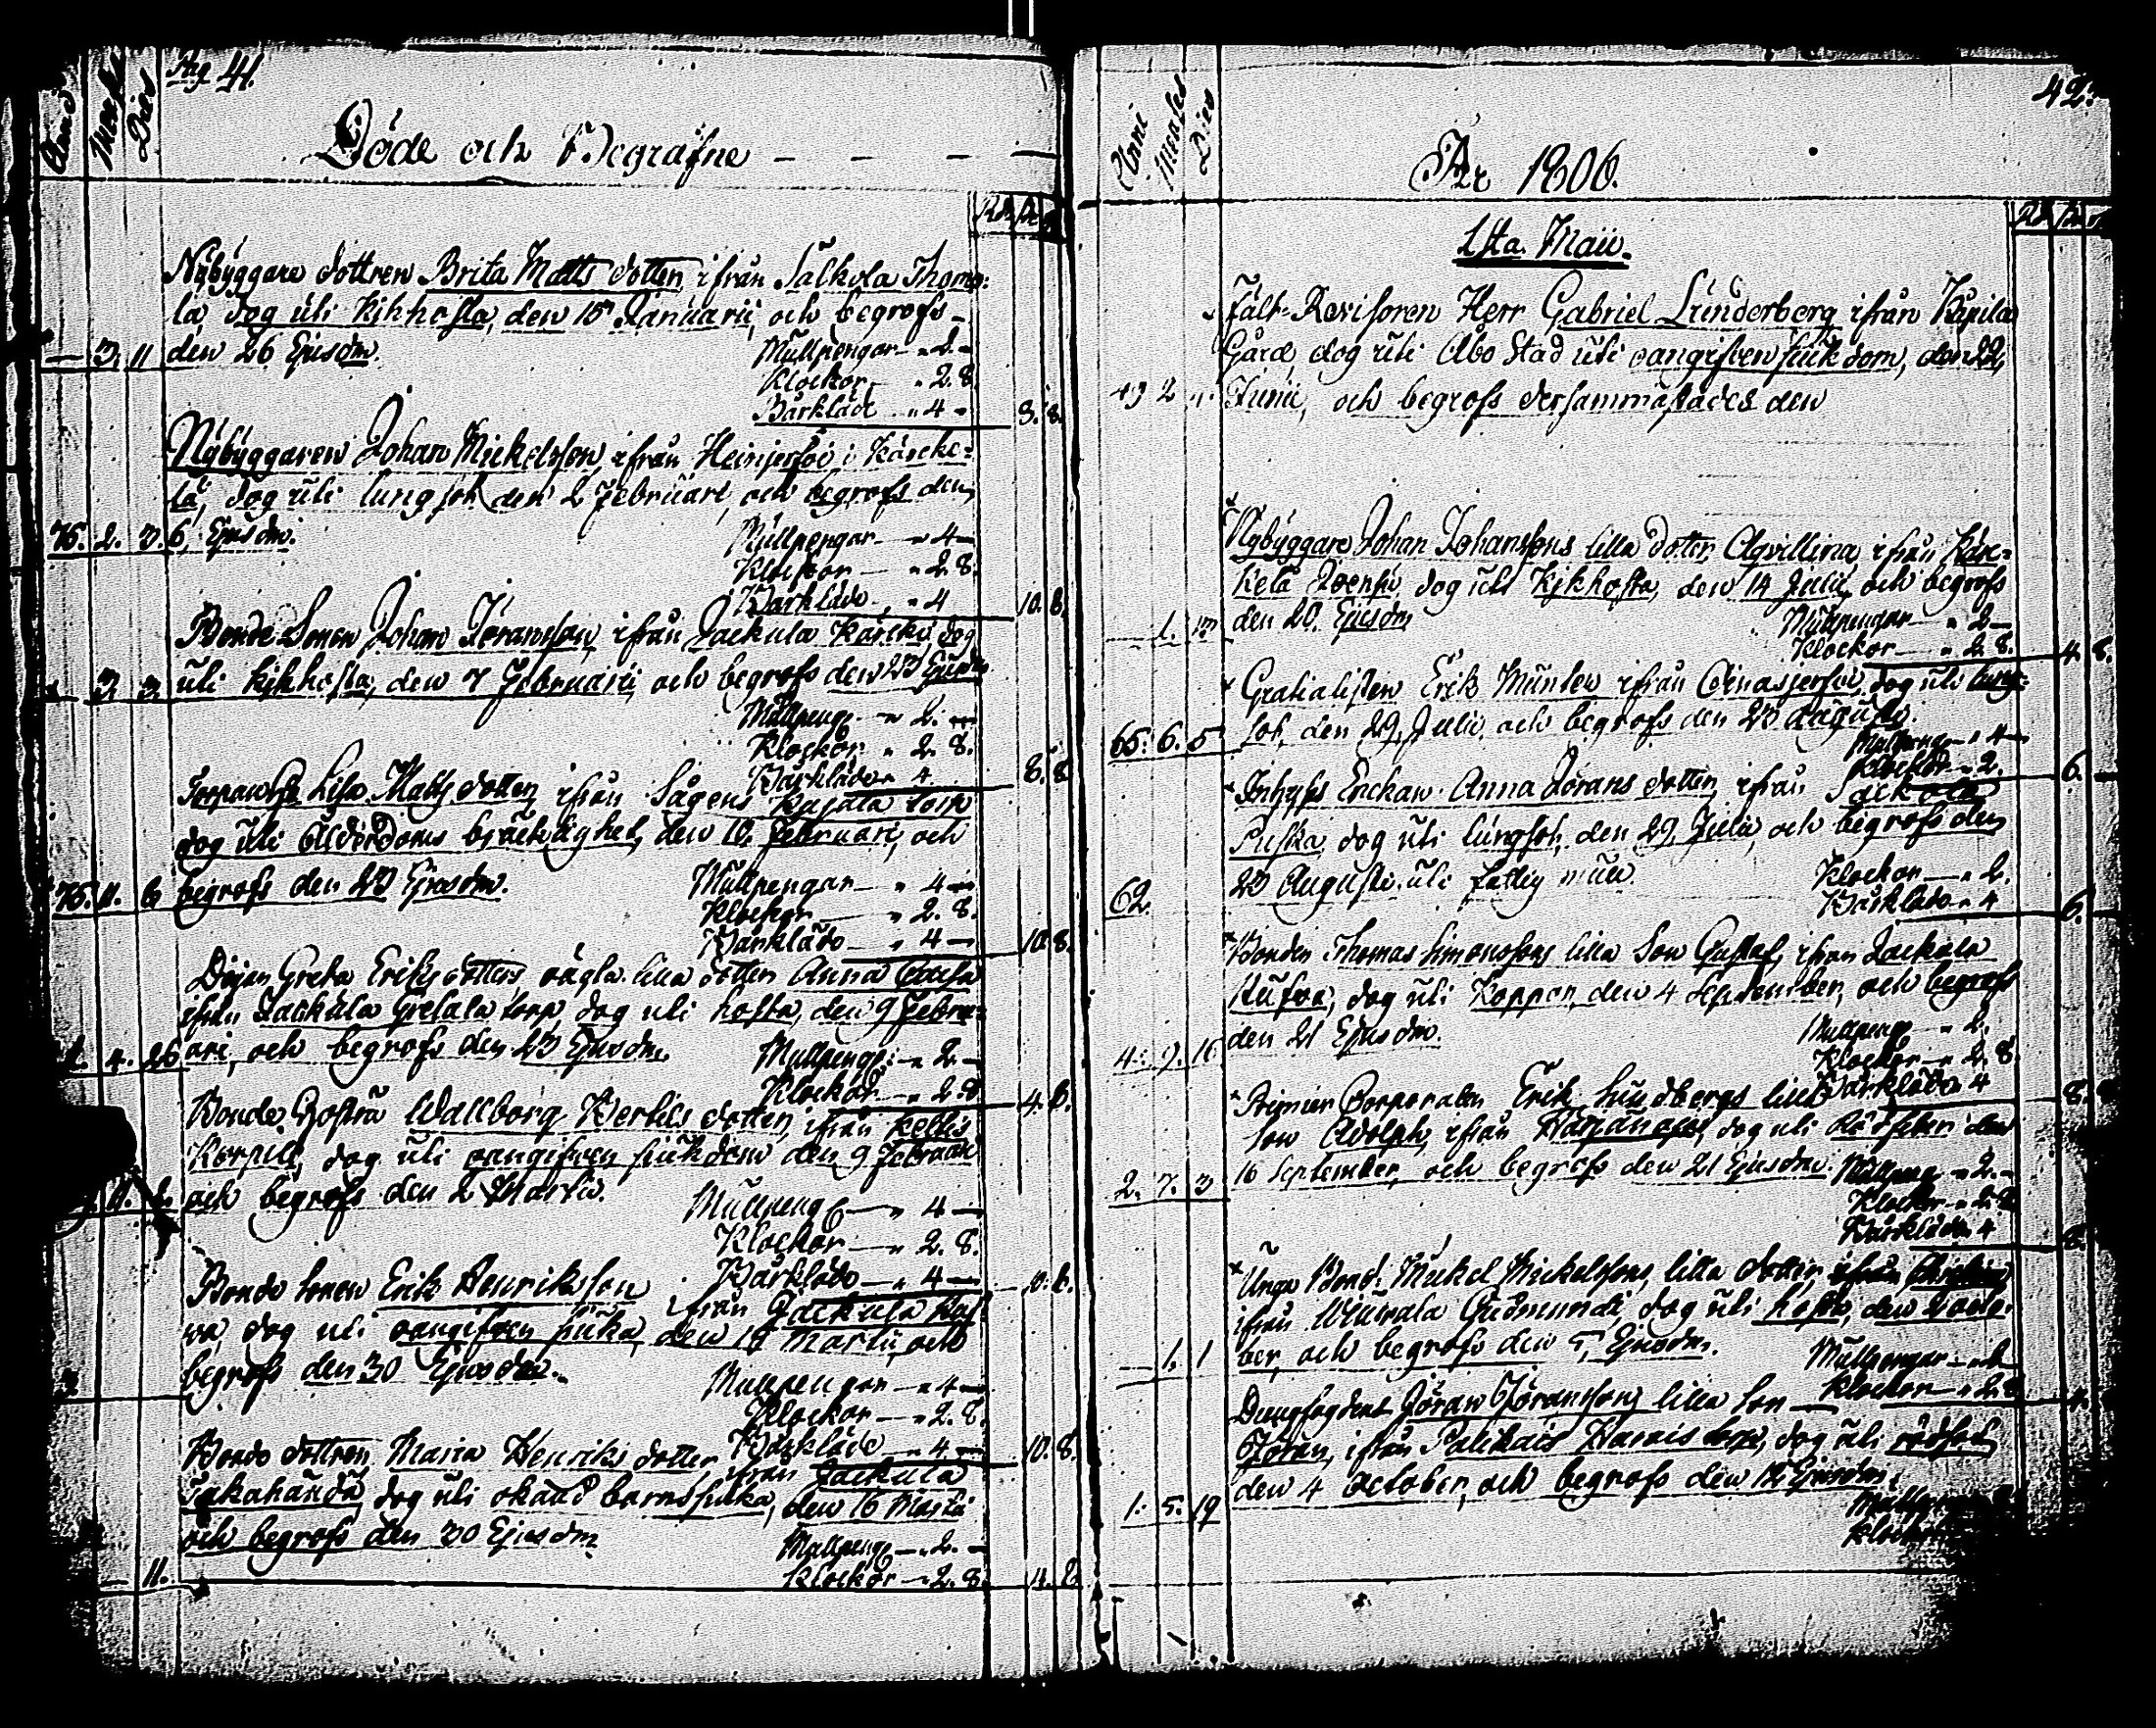 Pag 41.
Anni Mens Dies
Döde och Begrafne
Nybyggare dottren Brita Matts dotter, ifrån Salkola Thomo-
la, dog uti kikhosta, den 15 Januarii, och begrofs
— 3. 11 den 26 Ejusdm.
Mullpengar — " 2. —
Klockor — " 2. 8.
Bårkläde " 4 —
8. 8.
Nybyggaren Johan Mickelsson, ifrån Heinjersoi i Kärcke-
lä, dog uti lungsot den 2 Februari, och begrofs den
75. 2. 3. 6 Ejusdm.
Mullpengar — " 4 —
Klockor — " 2. 8.
Bårkläde " 4
10. 8.
Bonde Sonen Johan Jöransson, ifrån Jackula Kärcki, dog
— 3. 3. uti kikhosta, den 7 Februarii och begrofs den 23 Ejusdm
Mullpeng. — " 2. —
Klockor " 2. 8.
Bårkläde " 4
8. 8.
Lisa Matts dotter ifrån Sågens Kajala torp
dog uti Ålderdoms bräcklighet, den 10 Februari, och
75. 11. 6 begrofs den 23 Ejusdm.
Mullpengar — " 4 —
Klockor — " 2. 8.
Bårkläde — " 4 —
10. 8.
Pigan Greta Eriks dotters oägta lilla dotter Anna
ifrån Jackula Gretala torp dog uti hosta, den 9 Febru-
4. 26 ari, och begrofs den 23 Ejusdm.
Mullpeng: — " 2. —
Klockor — " 2. 8
4. 8.
Bonde Wallborg Bertils dotter, ifrån
dog uti oangifven siukdom den 9 Februari
och begrofs den 2 Martii.
Mullpeng — " 4 —
Klockor — " 2. 8.
Bårkläde — " 4 —
10. 8.
Bonde Sonen Erik Henriksson ifrån Jackula
dog uti oangifven siuka, den Martii, och
begrofs den 30 Ejusdm.
Mullpengar — " 4 —
Klockor — " 2. 8.
Bårkläde — " 4 —
10. 8.
Bonde dottren Maria Henriks dotter ifrån Jackula
dog uti okänd barnssiuka, den 16 Martii
och begrofs den 30 Ejusdm
Mullpeng — " 2. —
Klockor — " 2. 8.
— 11.
4. 8.
42.
Anni Menses Dies
År 1806.
1sta Maii.
Fält-Revisoren Herr Gabriel Lünderberg ifrån
Gård, dog uti Åbo Stad uti oangifven siukdom, den 22
49 2 Junii, och begrofs dersammastädes den
Nybyggare Johan Johanssons lilla dotter Agvillina, ifrån Kärc-
kelä dog uti kikhosta, den 14 Julii, och begrofs
— 1. den 20. Ejusdm
Mullpengar " 2 —
Klockor — " 2. 8.
4. 8.
Gratialisten Erik Munter ifrån dog uti lung-
65. 6. 5 sot, den 29 Julii, och begrofs den 23 Augusti.
Mullpeng — " 4 —
Klockor " 2.
6.
Inhyses Enckan Anna Jörans dotter, ifrån
dog uti lungsot, den 29 Julii, och begrofs den
62. 23 Augusti uti fattig mull.
Klockor — " 2.
Bårkläde " 4
6.
Bonden Thomas Simonssons lilla Son Gustaf, ifrån Jackula
dog uti Koppor, den 4 September, och begrofs
4. 9. 16 den 21 Ejusdm.
Mullpeng " 2.
Klockor — " 2. 8.
Bårkläde 4
8. 8
Premier Corporalen Erik Sundbergs lilla
Son Adolph, ifrån dog uti Rödsoten den
2. 7. 3 16 September, och begrofs den 21 Ejusdm.
Mullpeng " 2. —
Klockor " 2. 8
Bårkläde 4
8.
Unga Bond. Mickel Mickelssons, lilla dotter,
ifrån Gudmundi, dog uti hosta, den 2 octo-
— 1. 1 ber, och begrofs den 5 Ejusdm.
Mullpengar — " 2
Klockor — " 2. 8
Jöran Jöranssons lilla Son —
Jöran, ifrån dog uti rödsot
1. 5. 19 den 4 October, och begrofs den 12 Ejusdm.